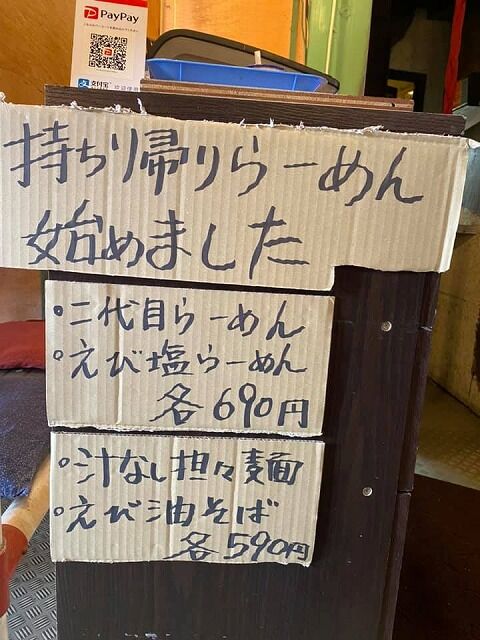 PayPay
持ち帰りらーめん
始めました
・二代目らーめん
・えび塩らーめん
各690円
・汁なし担々麺
・えび油そば
各590円